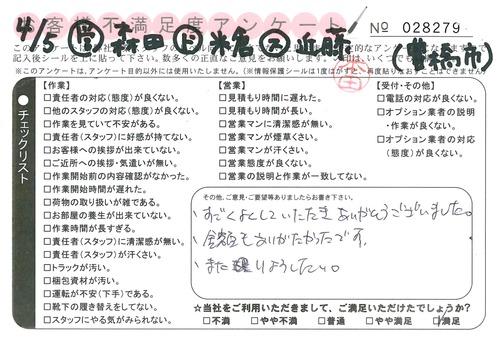 お客様不満足度アンケート
No 028279
4/5 営 森田 ド 米倉 ス 近藤 (豊橋市)
記入後シールを上に貼って下さい。数多くの正直なご意見をお願いします。
※このアンケートは、アンケート目的以外には使用いたしません。(※情報保護シールは1度はがすと、再度貼りなおすことはできません)
チェックリスト
【作業】
□責任者の対応(態度)が良くない。
□他のスタッフの対応(態度)が良くない。
□作業を見ていて不安がある。
□責任者(スタッフ)に好感が持てない。
□お客様への挨拶が出来ていない。
□ご近所への挨拶・気遣いが無い。
□作業開始前の内容確認がなかった。
□作業開始時間が遅れた。
□荷物の取り扱いが雑である。
□お部屋の養生が出来ていない。
□作業時間が長すぎる。
□責任者(スタッフ)に清潔感が無い。
□責任者(スタッフ)が汗くさい。
□トラックが汚い。
□梱包資材が汚い。
□運転が不安(下手)である。
□靴下の履き替えをしてない。
□スタッフにやる気がみられない。
【営業】
□見積もり時間に遅れた。
□見積もり時間が長い。
□営業マンに清潔感が無い。
□営業マンが煙草くさい。
□営業マンが汗くさい。
□営業態度が良くない。
□営業の説明と作業が一致してない。
【受付・その他】
□電話の対応が良くない。
□オプション業者の説明
・作業が良くない。
□オプション業者の対応
(態度)が良くない。
その他、ご意見・ご要望等ありましたらお書き下さい。
、すごくよくしていただきありがとうございました。
、金額もありがたかったです。
、また りようしたい。
☆当社をご利用いただきまして、ご満足いただけたでしょうか?
□不満 □やや不満 □普通 □やや満足 □満足